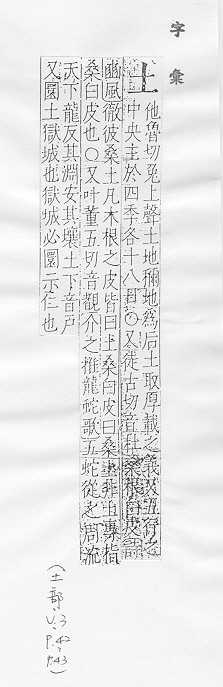 字彙
土 他魯切兎上聲土地稱地為后土取厚載之義又五行之
中央主於四季各十八日○又徒古切音杜桑根白皮詩
豳風徹彼桑土凡木根之皮皆曰土桑白皮曰桑土非止專指
桑白皮也○又叶董五切音覩介之推龍蛇歌五蛇從之周流
天下龍反其淵安其壤土下音戶
又圜土獄城也獄城必圜示仁也
(土部,V.3 P.42 P.43)